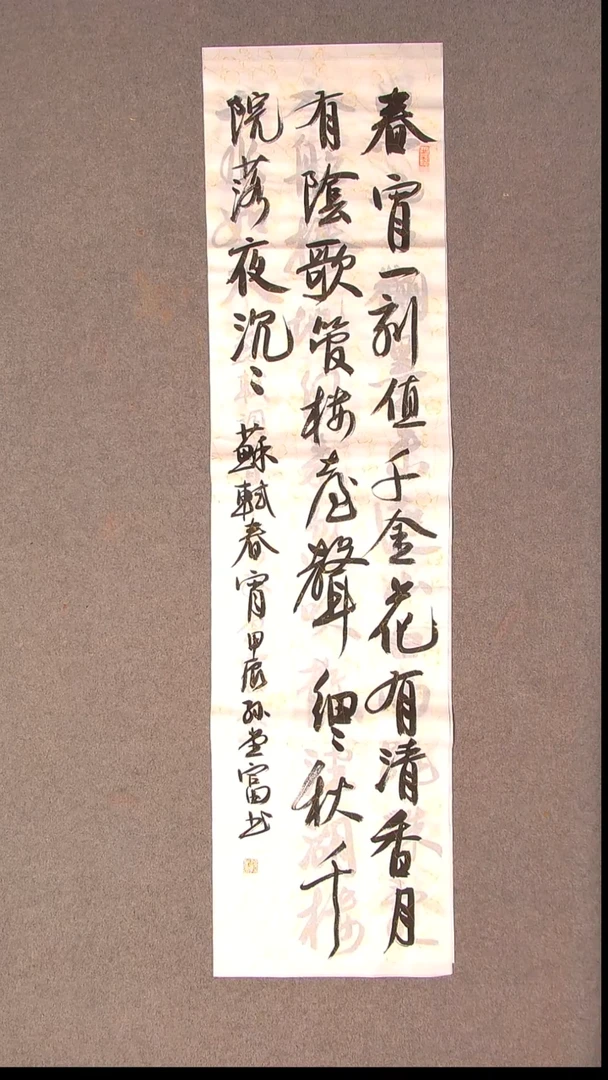 春宵一刻值千金花有清香月
有陰歌管楼臺聲細〻秋千
院落夜沉〻蘇軾春宵甲辰孙堂富书